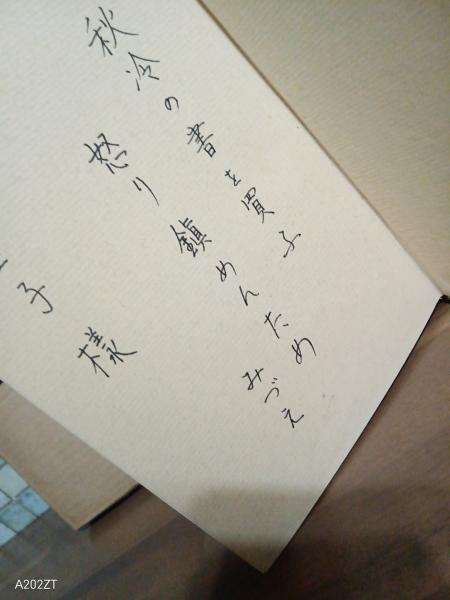 秋冷の書を買ふ
怒り鎮めんため
みづえ
子様
A202ZT